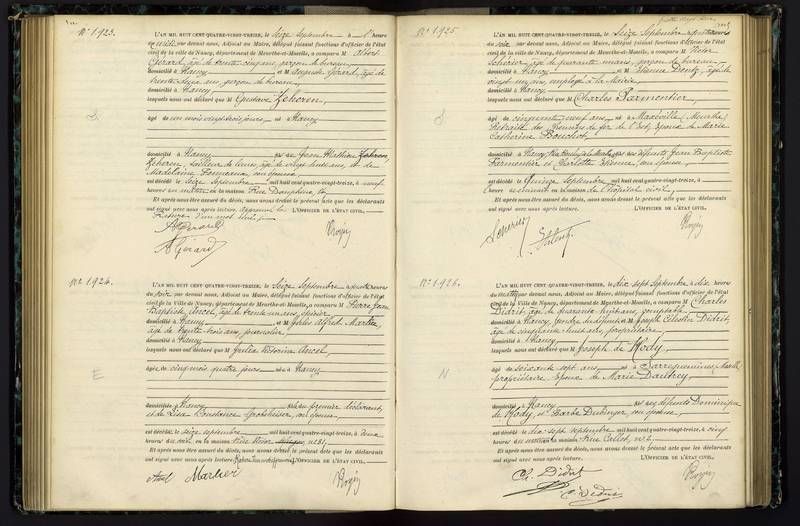 N° 1923.
L'AN MIL HUIT CENT QUATRE-VINGT-TREIZE, le Seize Septembre à heure
par devant nous, Adjoint au Maire, délégué faisant fonctions d'officier de l'état
civil de la Ville de Nancy, département de Meurthe-et-Moselle, a comparu M Albert
Gérard, âgé de trente cinq ans, garçon de bureau,
domicilié à Nancy et M Auguste Gérard, âgé de
trente ans, garçon de bureau,
domicilié à Nancy
lesquels nous ont déclaré que M Gustave Zeheren,
âgé de un mois vingt trois jours, né à Nancy
domicilié à Nancy Jean Mathieu Zeheren
Zeheren, tailleur de âgé de vingt huit ans, et de
Madeleine son épouse
est décédé le seize Septembre mil huit cent quatre-vingt-treize, à neuf
heures du matin en sa maison Rue Dauphine,
Et après nous être assuré du décès, nous avons dressé le présent acte que les déclarants
ont signé avec nous après lecture. L'OFFICIER DE L'ÉTAT CIVIL,
A. Gérard
N° 1924.
L'AN MIL HUIT CENT QUATRE-VINGT-TREIZE, le Seize Septembre à quatre heures
du soir par devant nous, Adjoint au Maire, délégué faisant fonctions d'officier de l'état
civil de la Ville de Nancy, département de Meurthe-et-Moselle, a comparu M Pierre Jean
Baptiste Ancel, âgé de trente un ans,
domicilié à Nancy et M Jules Alfred Martier,
âgé de trente trois ans, journalier,
domicilié à Nancy
lesquels nous ont déclaré que M Julie Victorine Ancel,
âgée de cinq mois quatre jours née à Nancy
E
domiciliée à Nancy premier déclarant,
et de Constance son épouse
est décédée le seize septembre mil huit cent quatre-vingt-treize, à deux
heures du soir en sa maison Rue
Et après nous être assuré du décès, nous avons dressé le présent acte que les déclarants
ont signé avec nous après lecture. L'OFFICIER DE L'ÉTAT CIVIL,
Ancel Martier
N° 1925.
L'AN MIL HUIT CENT QUATRE-VINGT-TREIZE, le Seize Septembre à quatre heures
du soir par devant nous, Adjoint au Maire, délégué faisant fonctions d'officier de l'état
civil de la Ville de Nancy, département de Meurthe-et-Moselle, a comparu M Victor
âgé de quarante ans, garçon de bureau,
domicilié à Nancy et M Etienne âgé de
ans, employé à la Mairie
domicilié à Nancy
lesquels nous ont déclaré que M Charles Parmentier,
âgé de cinquante neuf ans né à Maxéville, Meurthe
Retraité des Chemins de fer de l'Est, époux de Marie
Catherine Bouchot,
domicilié à Nancy, Rue des défunts Jean Baptiste
Parmentier et Charlotte son épouse
est décédé le Quinze Septembre mil huit cent quatre-vingt-treize, à
heure en sa maison de l'hôpital civil,
Et après nous être assuré du décès, nous avons dressé le présent acte que les déclarants
ont signé avec nous après lecture. L'OFFICIER DE L'ÉTAT CIVIL,
N° 1926.
L'AN MIL HUIT CENT QUATRE-VINGT-TREIZE, le dix sept Septembre, à dix heures
du matin par devant nous, Adjoint au Maire, délégué faisant fonctions d'officier de l'état
civil de la Ville de Nancy, département de Meurthe-et-Moselle, a comparu M Charles
Didrit, âgé de quarante huit ans, comptable
domicilié à Nancy, gendre du défunt et M Joseph Célestin Didrit,
âgé de cinquante huit ans, propriétaire,
domicilié à Nancy
lesquels nous ont déclaré que M Joseph de Hody,
âgé de soixante sept ans né à Sarreguemines, Moselle
propriétaire, époux de Marie Dautrey,
N
domicilié à Nancy des défunts Dominique
de Hody, et Barbe Dubinger, son épouse,
est décédé le dix sept septembre mil huit cent quatre-vingt-treize, à cinq
heures du matin en sa maison Rue Callot, n° 2
Et après nous être assuré du décès, nous avons dressé le présent acte que les déclarants
ont signé avec nous après lecture. L'OFFICIER DE L'ÉTAT CIVIL,
Ch. Didrit
C. Didrit